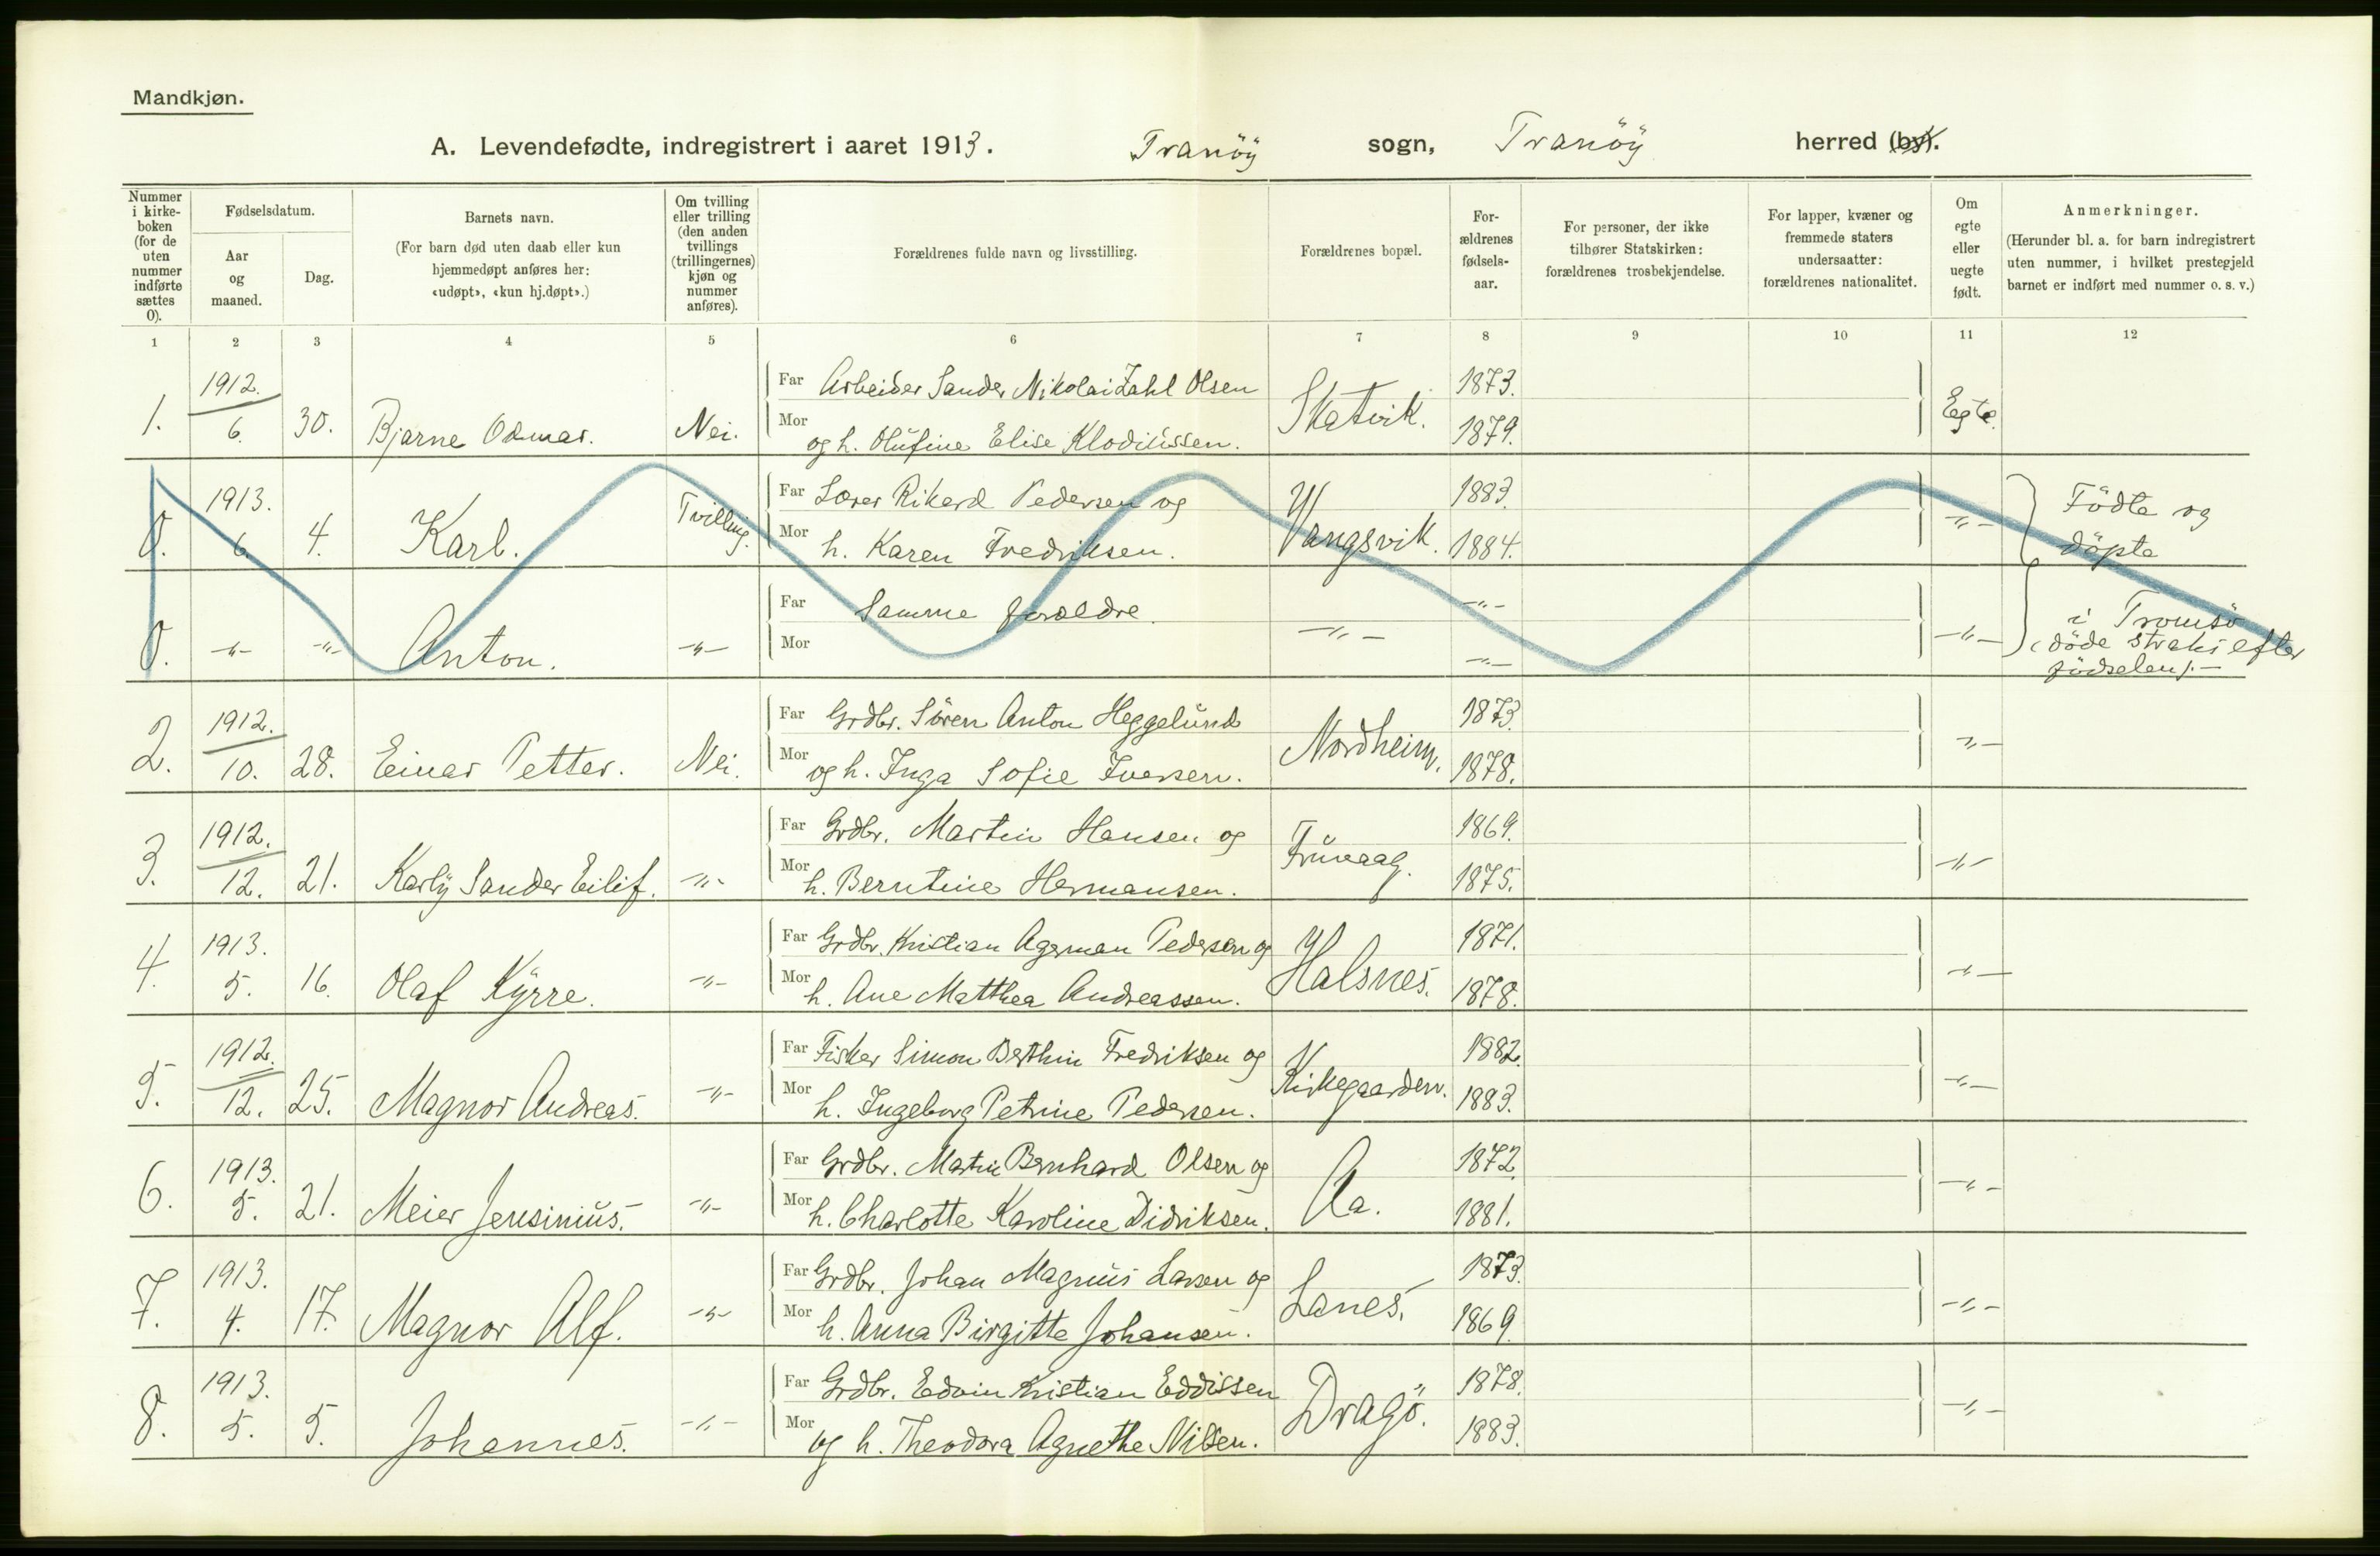 Mandkjøn.
A. Levendefødte, indregistrert i aaret 1913. Tranöy sogn, Tranöy herred (by).
Nummer i kirke-boken (for de uten nummer indførte sættes 0).
Fødselsdatum.
Aar og maaned.
Dag.
Barnets navn.
(For barn død uten daab eller kun hjemmedøpt anføres her: «udøpt», «kun hj.døpt».)
Om tvilling eller trilling (den anden tvillings (trillingernes) kjøn og nummer anføres).
Forældrenes fulde navn og livsstilling.
Forældrenes bopæl.
For-ældrenes fødsels-aar.
For personer, der ikke tilhører Statskirken: forældrenes trosbekjendelse.
For lapper, kvæner og fremmede staters undersaatter: forældrenes nationalitet.
Om egte eller uegte født.
Anmerkninger.
(Herunder bl. a. for barn indregistrert uten nummer, i hvilket prestegjeld barnet er indført med nummer o. s. v.)
1 2 3 4 5 6 7 8 9 10 11 12
1. 1912. 6. 30. Bjarne Odmar. Nei. Far Arbeider Sander Nikolai Zahl Olsen Skatvik. 1873. Egte.
Mor og h. Olufine Elise Klodiussen. 1879.
0. 1913. 6. 4. Karl. Tvilling. Far Lærer Rikard Pedersen og Vangsvik. 1883. -"- Födte og
Mor h. Karen Fredriksen. 1884. döpte
0. -"- -"- Anton. -"- Far Samme forældre. -"- -"- -"- i Tromsö
Mor -"- (döde straks efter
födselen). -
2. 1912. 10. 28. Einar Petter. Nei. Far Grdbr. Sören Anton Heggelund Nordheim. 1873. -"-
Mor og h. Inga Sofie Iversen. 1878.
3. 1912. 12. 21. Karly Sander Eilif. -"- Far Grdbr. Martin Hansen og Fruvaag. 1869. -"-
Mor h. Berntine Hermansen. 1875.
4. 1913. 5. 16. Olaf Kyrre. -"- Far Grdbr. Kristian Agerman Pedersen og Halsnes. 1871. -"-
Mor h. Ane Matthea Andreassen. 1878.
5. 1912. 12. 25. Magnor Andreas. -"- Far Fisker Simon Berthin Fredriksen og Kirkegaarden. 1882. -"-
Mor h. Ingeborg Petrine Pedersen. 1883.
6. 1913. 5. 21. Meier Jensinius. -"- Far Grdbr. Martin Bernhard Olsen og Aa. 1872. -"-
Mor h. Charlotte Karoline Didriksen. 1881.
7. 1913. 4. 17. Magnor Alf. -"- Far Grdbr. Johan Magnus Larsen og Lanes. 1873. -"-
Mor h. Anna Birgitte Johansen. 1869.
8. 1913. 5. 5. Johannes. -"- Far Grdbr. Edvin Kristian Eddissen Dragö. 1878. -"-
Mor og h. Theodora Agnethe Nilsen. 1883.